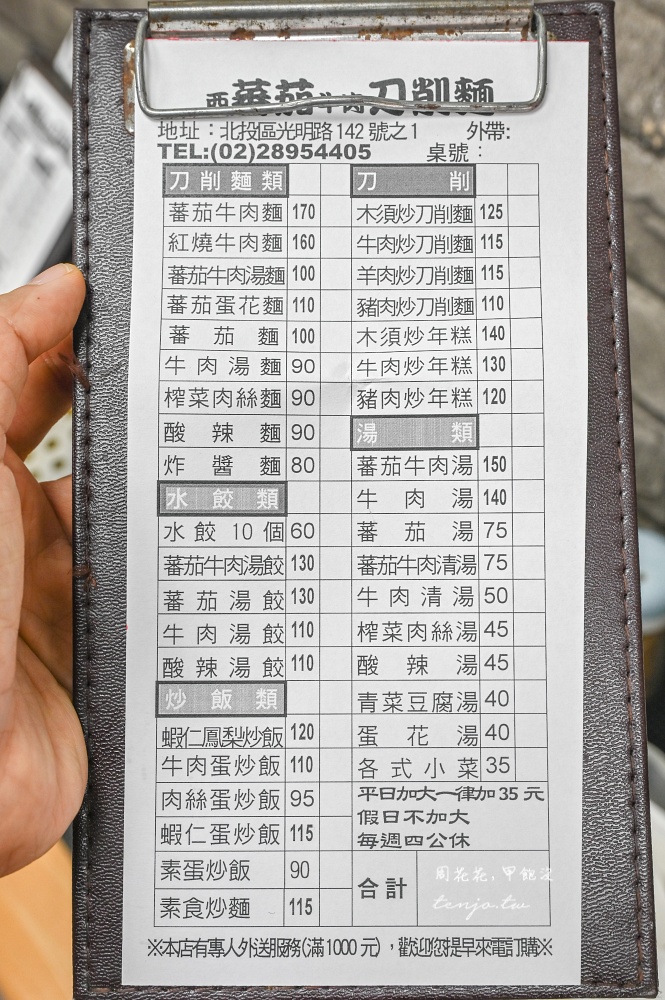 西蕃茄牛肉刀削麵
地址：北投區光明路142號之1 外帶:
TEL:(02)28954405 桌號：
刀削麵類
蕃茄牛肉麵 170
紅燒牛肉麵 160
蕃茄牛肉湯麵 100
蕃茄蛋花麵 110
蕃茄麵 100
牛肉湯麵 90
榨菜肉絲麵 90
酸辣麵 90
炸醬麵 80
水餃類
水餃10個 60
蕃茄牛肉湯餃 130
蕃茄湯餃 130
牛肉湯餃 110
酸辣湯餃 110
炒飯類
蝦仁鳳梨炒飯 120
牛肉蛋炒飯 110
肉絲蛋炒飯 95
蝦仁蛋炒飯 115
素蛋炒飯 90
素食炒麵 115
刀削
木須炒刀削麵 125
牛肉炒刀削麵 115
羊肉炒刀削麵 115
豬肉炒刀削麵 110
木須炒年糕 140
牛肉炒年糕 130
豬肉炒年糕 120
湯類
蕃茄牛肉湯 150
牛肉湯 140
蕃茄湯 75
蕃茄牛肉清湯 75
牛肉清湯 50
榨菜肉絲湯 45
酸辣湯 45
青菜豆腐湯 40
蛋花湯 40
各式小菜 35
平日加大一律加35元
假日不加大
每週四公休
合計
周花花,甲飽沒
tenjo.tw
※本店有專人外送服務(滿1000元)，歡迎您提早來電訂購※